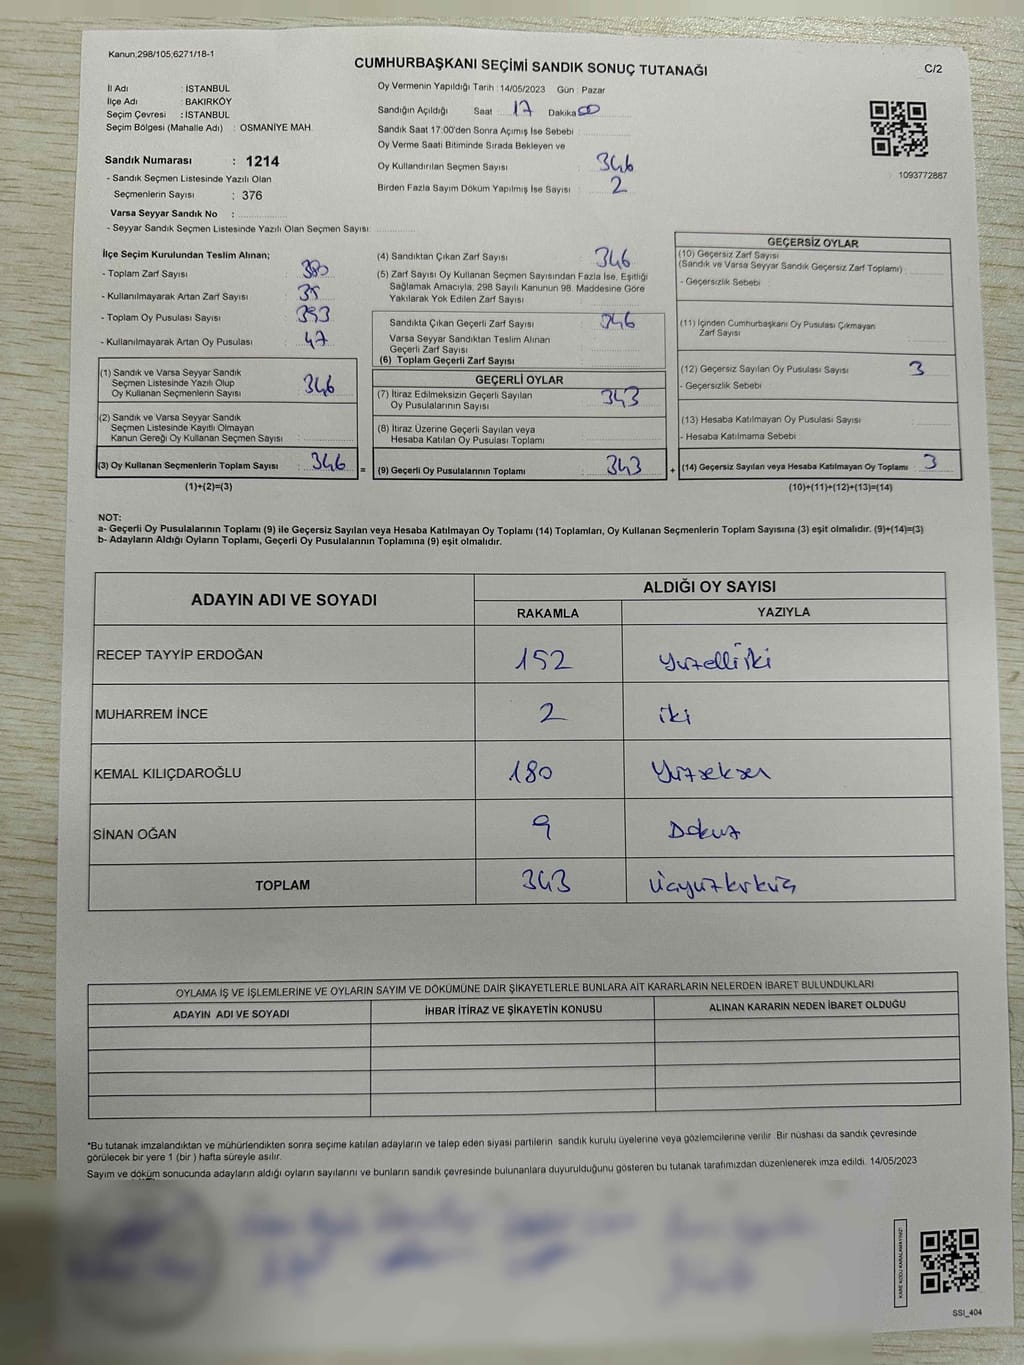 Kanun;298/105;6271/18-1
CUMHURBAŞKANI SEÇİMİ SANDIK SONUÇ TUTANAĞI
C/2
İl Adı : İSTANBUL
İlçe Adı : BAKIRKÖY
Seçim Çevresi : İSTANBUL
Seçim Bölgesi (Mahalle Adı) : OSMANİYE MAH.
Sandık Numarası : 1214
- Sandık Seçmen Listesinde Yazılı Olan
Seçmenlerin Sayısı : 376
Varsa Seyyar Sandık No :
- Seyyar Sandık Seçmen Listesinde Yazılı Olan Seçmen Sayısı:
Oy Vermenin Yapıldığı Tarih : 14/05/2023 Gün : Pazar
Sandığın Açıldığı Saat : 17 Dakika 00
Sandık Saat 17:00'den Sonra Açımış İse Sebebi :
Oy Verme Saati Bitiminde Sırada Bekleyen ve
Oy Kullandırılan Seçmen Sayısı : 346
Birden Fazla Sayım Döküm Yapılmış İse Sayısı : 2
1093772887
İlçe Seçim Kurulundan Teslim Alınan;
- Toplam Zarf Sayısı : 380
- Kullanılmayarak Artan Zarf Sayısı :
- Toplam Oy Pusulası Sayısı : 393
- Kullanılmayarak Artan Oy Pusulası : 47
(1) Sandık ve Varsa Seyyar Sandık
Seçmen Listesinde Yazılı Olup
Oy Kullanan Seçmenlerin Sayısı : 346
(2) Sandık ve Varsa Seyyar Sandık
Seçmen Listesinde Kayıtlı Olmayan
Kanun Gereği Oy Kullanan Seçmen Sayısı :
(3) Oy Kullanan Seçmenlerin Toplam Sayısı : 346 =
(1)+(2)=(3)
(4) Sandıktan Çıkan Zarf Sayısı : 346
(5) Zarf Sayısı Oy Kullanan Seçmen Sayısından Fazla İse, Eşitliği
Sağlamak Amacıyla, 298 Sayılı Kanunun 98. Maddesine Göre
Yakılarak Yok Edilen Zarf Sayısı :
Sandıkta Çıkan Geçerli Zarf Sayısı : 346
Varsa Seyyar Sandıktan Teslim Alınan
Geçerli Zarf Sayısı :
(6) Toplam Geçerli Zarf Sayısı :
GEÇERLİ OYLAR
(7) İtiraz Edilmeksizin Geçerli Sayılan
Oy Pusulalarının Sayısı : 343
(8) İtiraz Üzerine Geçerli Sayılan veya
Hesaba Katılan Oy Pusulası Toplamı :
(9) Geçerli Oy Pusulalarının Toplamı : 343 +
GEÇERSİZ OYLAR
(10) Geçersiz Zarf Sayısı
(Sandık ve Varsa Seyyar Sandık Geçersiz Zarf Toplamı) :
- Geçersizlik Sebebi :
(11) İçinden Cumhurbaşkanı Oy Pusulası Çıkmayan
Zarf Sayısı :
(12) Geçersiz Sayılan Oy Pusulası Sayısı : 3
- Geçersizlik Sebebi :
(13) Hesaba Katılmayan Oy Pusulası Sayısı :
- Hesaba Katılmama Sebebi :
(14) Geçersiz Sayılan veya Hesaba Katılmayan Oy Toplamı : 3
(10)+(11)+(12)+(13)=(14)
NOT:
a- Geçerli Oy Pusulalarının Toplamı (9) ile Geçersiz Sayılan veya Hesaba Katılmayan Oy Toplamı (14) Toplamları, Oy Kullanan Seçmenlerin Toplam Sayısına (3) eşit olmalıdır. (9)+(14)=(3)
b- Adayların Aldığı Oyların Toplamı, Geçerli Oy Pusulalarının Toplamına (9) eşit olmalıdır.
ADAYIN ADI VE SOYADI ALDIĞI OY SAYISI
RAKAMLA YAZIYLA
RECEP TAYYİP ERDOĞAN 152 yüzelliiki
MUHARREM İNCE 2 iki
KEMAL KILIÇDAROĞLU 180 Yüzseksen
SİNAN OĞAN 9 Dokuz
TOPLAM 343 üçyüzkırküç
OYLAMA İŞ VE İŞLEMLERİNE VE OYLARIN SAYIM VE DÖKÜMÜNE DAİR ŞİKAYETLERLE BUNLARA AİT KARARLARIN NELERDEN İBARET BULUNDUKLARI
ADAYIN ADI VE SOYADI İHBAR İTİRAZ VE ŞİKAYETİN KONUSU ALINAN KARARIN NEDEN İBARET OLDUĞU
*Bu tutanak imzalandıktan ve mühürlendikten sonra seçime katılan adayların ve talep eden siyasi partilerin sandık kurulu üyelerine veya gözlemcilerine verilir. Bir nüshası da sandık çevresinde
görülecek bir yere 1 (bir) hafta süreyle asılır.
Sayım ve döküm sonucunda adayların aldığı oyların sayılarını ve bunların sandık çevresinde bulunanlara duyurulduğunu gösteren bu tutanak tarafımızdan düzenlenerek imza edildi. 14/05/2023
KARE KODU KARALAMAYINIZ!
SSI_404